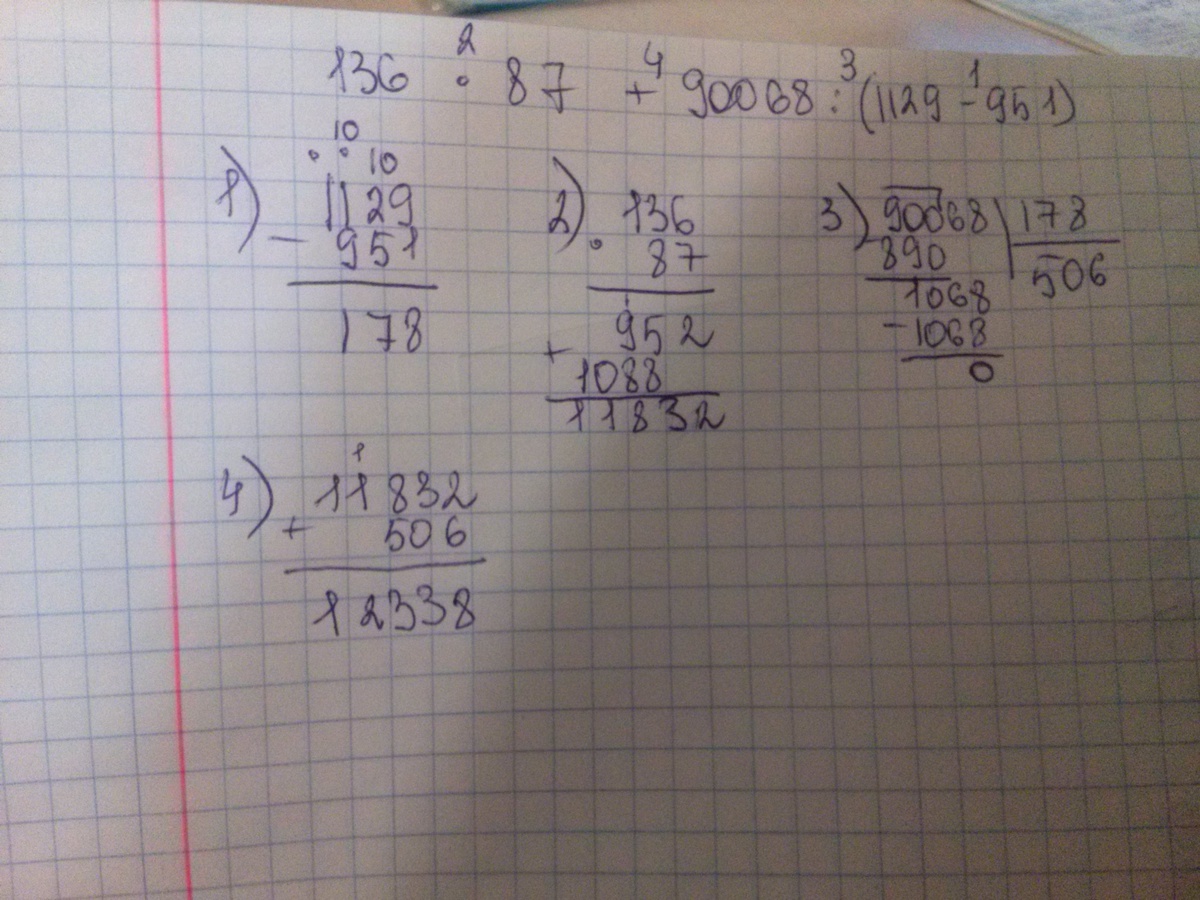 2 4 3 1
136 · 87 + 90068 : (1129 - 951)
10
1) · · 10
1129
- 951
178
2) 136
· 87
1
952
+ 1088
11832
3) 90068 | 178
890 506
1068
- 1068
0
1
4) 11832
+ 506
12338